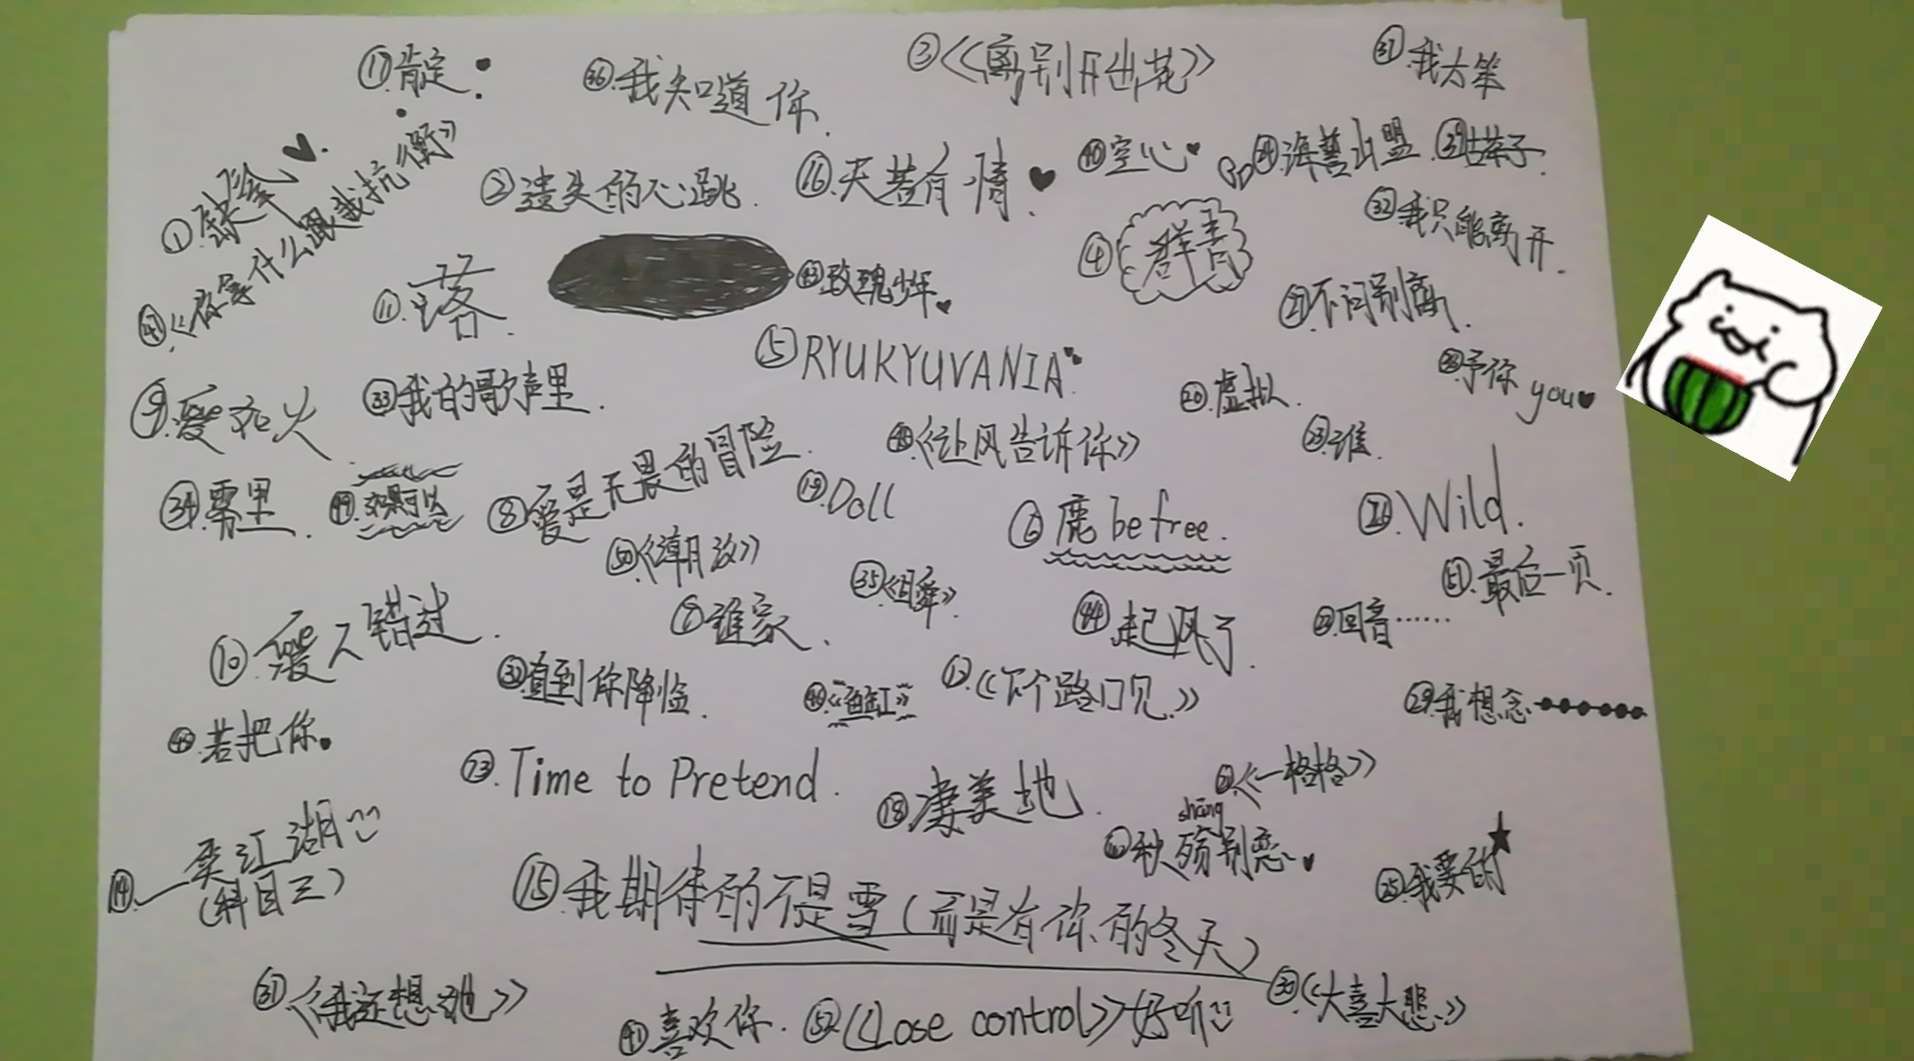 ⑰肯定.
㊱.我知道你.
③《离别开出花》
㊲我太笨
①.缺氧
②遗失的心跳.
⑯.天若有情.
㊵空心
㉔海誓山盟.
㊴苦茶子.
㉜我只能离开.
《你拿什么跟我抗衡》
⑪.落.
㊸玫瑰少年.
④群青
㉑不问别离.
⑤RYUKYUVANIA.
㉘予你 you
⑨.爱如火
㉝我的歌声里.
⑳.虚拟.
㊽《让风告诉你》
㉓谁.
㉞.雾里.
㊾.如果可以
⑧爱是无畏的冒险.
⑲.Doll
⑥鹿be free.
Wild.
㊿《潮汐》
51.最后一页.
㉟《日舞》
⑧谁家.
㊹起风了.
㉒回音……
⑩爱人错过.
直到你降临.
《鱼缸》
⑫.《下个路口见》
㉙我想念
若把你.
Time to Pretend.
⑱凄美地.
《一格格》
shāng
秋殇别恋
⑭.一笑江湖
(科目三)
⑮.我期待的不是雪(而是有你的冬天)
㉕我要的
㉛《我还想她》
㊶喜欢你.
52《Lose control》好听
㉚《大喜大悲》